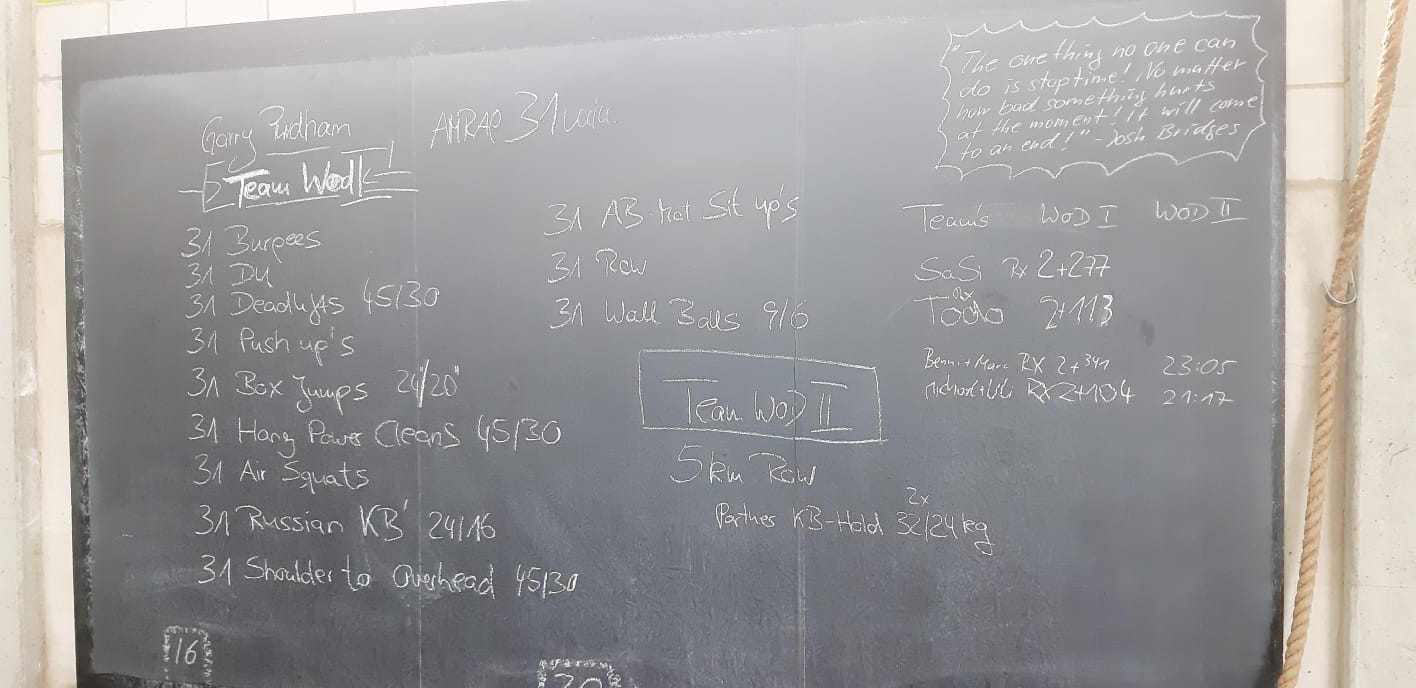 Garry Purdham
AMRAP 31 min.
Team Wod I
31 Burpees
31 DU
31 Deadlifts 45/30
31 Push up's
31 Box Jumps 24"/20"
31 Hang Power Cleans 45/30
31 Air Squats
31 Russian KB' 24/16
31 Shoulder to Overhead 45/30
16
31 AB-Mat Sit up's
31 Row
31 Wall Balls 9/6
Team WOD II
5km Row
2x
Partner KB-Hold 32/24 kg
20
"The one thing no one can
do is stop time! No matter
how bad something hurts
at the moment! it will come
to an end!" - Josh Bridges
Team's WOD I WOD II
SaSi Rx 2+277
Rx
Todo 2+113
Benni+Marc RX 2+341 23:05
RX 2+104 21:17